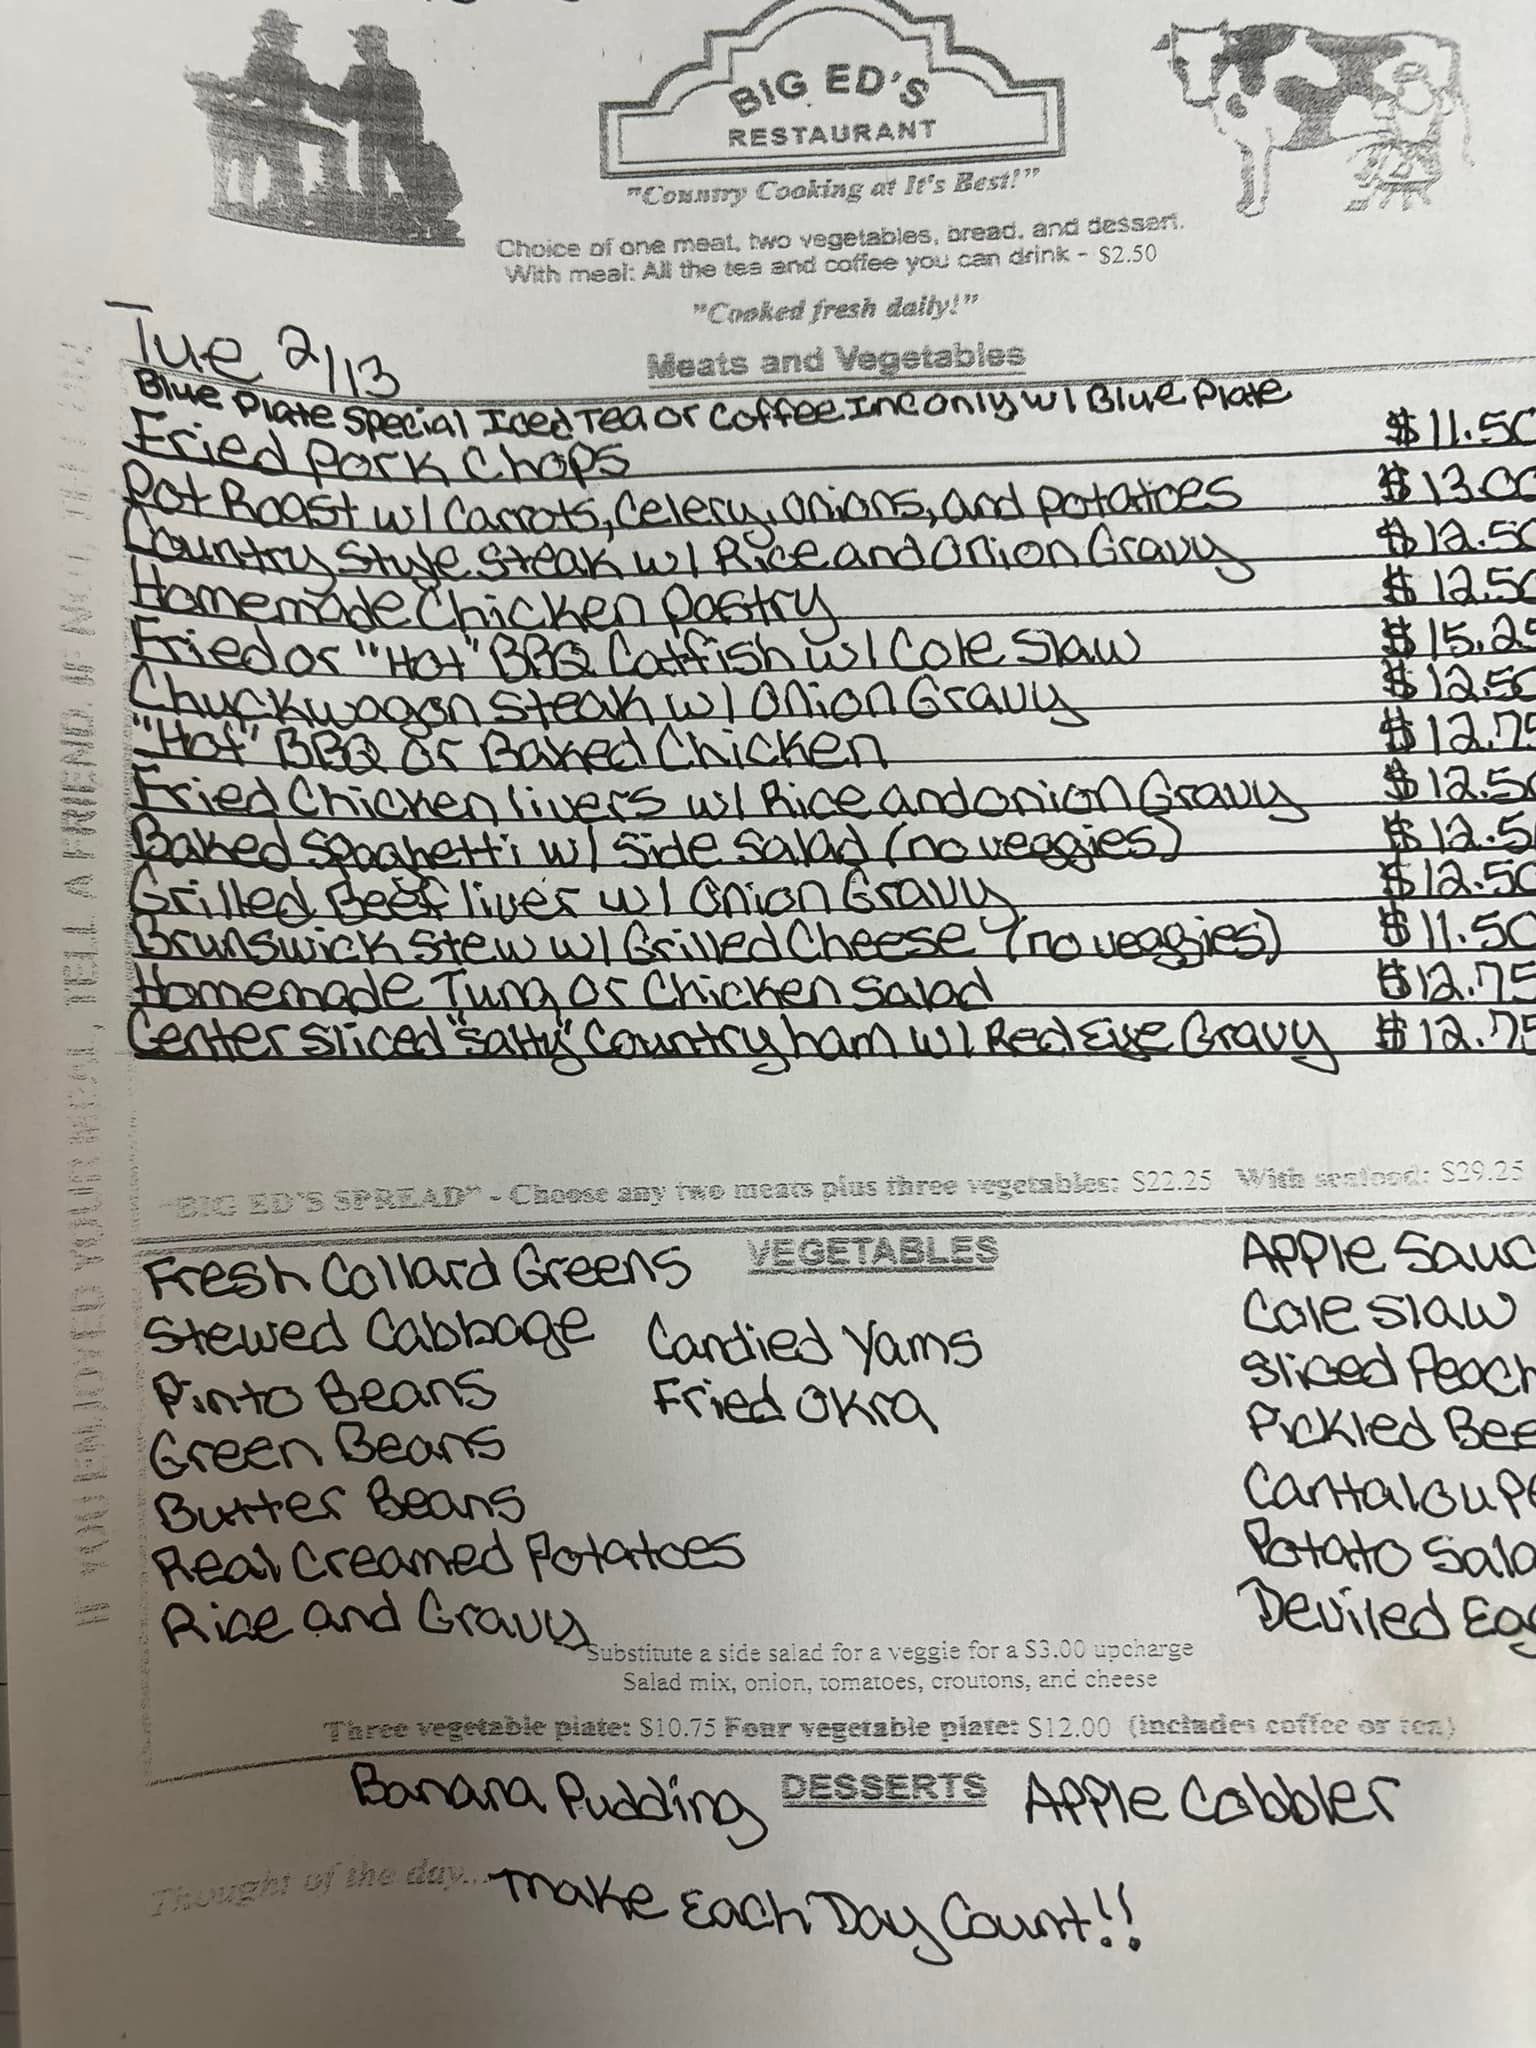 BIG ED'S
RESTAURANT
"Country Cooking at It's Best!"
Choice of one meat, two vegetables, bread, and dessert.
With meal: All the tea and coffee you can drink - $2.50
"Cooked fresh daily!"
Tue 2/13
Meats and Vegetables
Blue Plate Special Iced Tea or Coffee Inc only w/ Blue Plate
Fried Pork Chops $11.50
Pot Roast w/ Carrots, Celery, onions, and potatoes $13.00
Country Style Steak w/ Rice and Onion Gravy $12.50
Homemade Chicken Pastry $12.50
Fried or "Hot" BBQ Catfish w/ Cole Slaw $15.25
Chuckwagon Steak w/ Onion Gravy $12.50
"Hot" BBQ or Baked Chicken $12.75
Fried Chicken livers w/ Rice and onion Gravy $12.50
Baked Spaghetti w/ Side Salad (no veggies) $12.5
Grilled Beef liver w/ Onion Gravy $12.50
Brunswick Stew w/ Grilled Cheese (no veggies) $11.50
Homemade Tuna or Chicken Salad $12.75
Center Sliced "Salty" Country ham w/ Red Eye Gravy $12.75
"BIG ED'S SPREAD" - Choose any two meats plus three vegetables: $22.25 With seafood: $29.25
VEGETABLES
Fresh Collard Greens
Stewed Cabbage
Pinto Beans
Green Beans
Butter Beans
Real Creamed Potatoes
Rice and Gravy
Candied Yams
Fried Okra
Apple Sauc
Cole Slaw
Sliced Peach
Pickled Bee
Cantaloupe
Potato Sala
Deviled Eg
Substitute a side salad for a veggie for a $3.00 upcharge
Salad mix, onion, tomatoes, croutons, and cheese
Three vegetable plate: $10.75 Four vegetable plate: $12.00 (includes coffee or tea)
DESSERTS
Banana Pudding Apple Cobbler
Thought of the day... Make Each Day Count!!
IF YOU ENJOYED YOUR MEAL, TELL A FRIEND. IF NOT, TELL